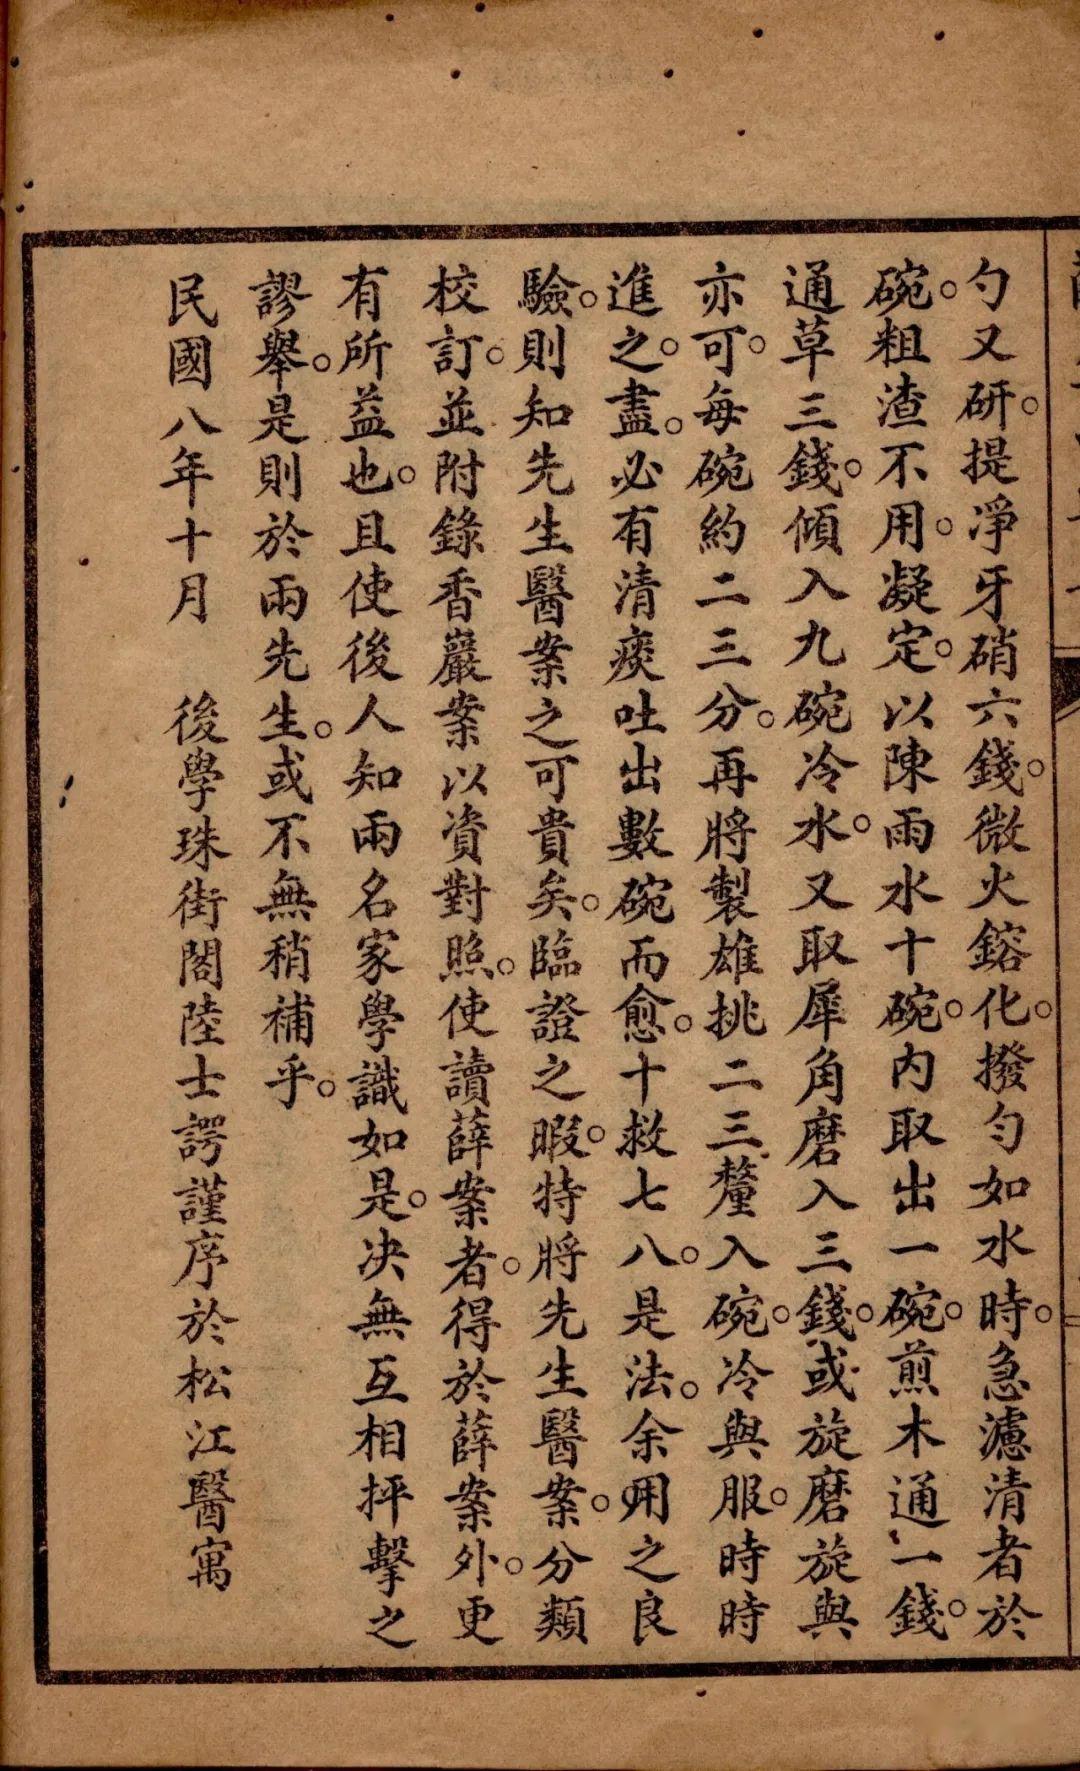 勺又研。提淨牙硝六錢。微火鎔化。撥勻如水時。急濾清者於
碗。粗渣不用。凝定。以陳雨水十碗。內取出一碗。煎木通一錢。
通草三錢。傾入九碗冷水。又取犀角磨入三錢。或旋磨旋與
亦可。每碗約二三分。再將製雄挑二三釐入碗。冷與服。時時
進之。盡。必有清痰吐出數碗而愈。十救七八。是法。余用之良
驗。則知先生醫案之可貴矣。臨證之暇。特將先生醫案。分類
校訂。並附錄香巖案以資對照。使讀薛案者。得於薛案外。更
有所益也。且使後人知兩名家學識如是。決無互相抨擊之
謬舉。是則於兩先生。或不無稍補乎。
民國八年十月　後學珠街閣陸士諤謹序於松江醫寓